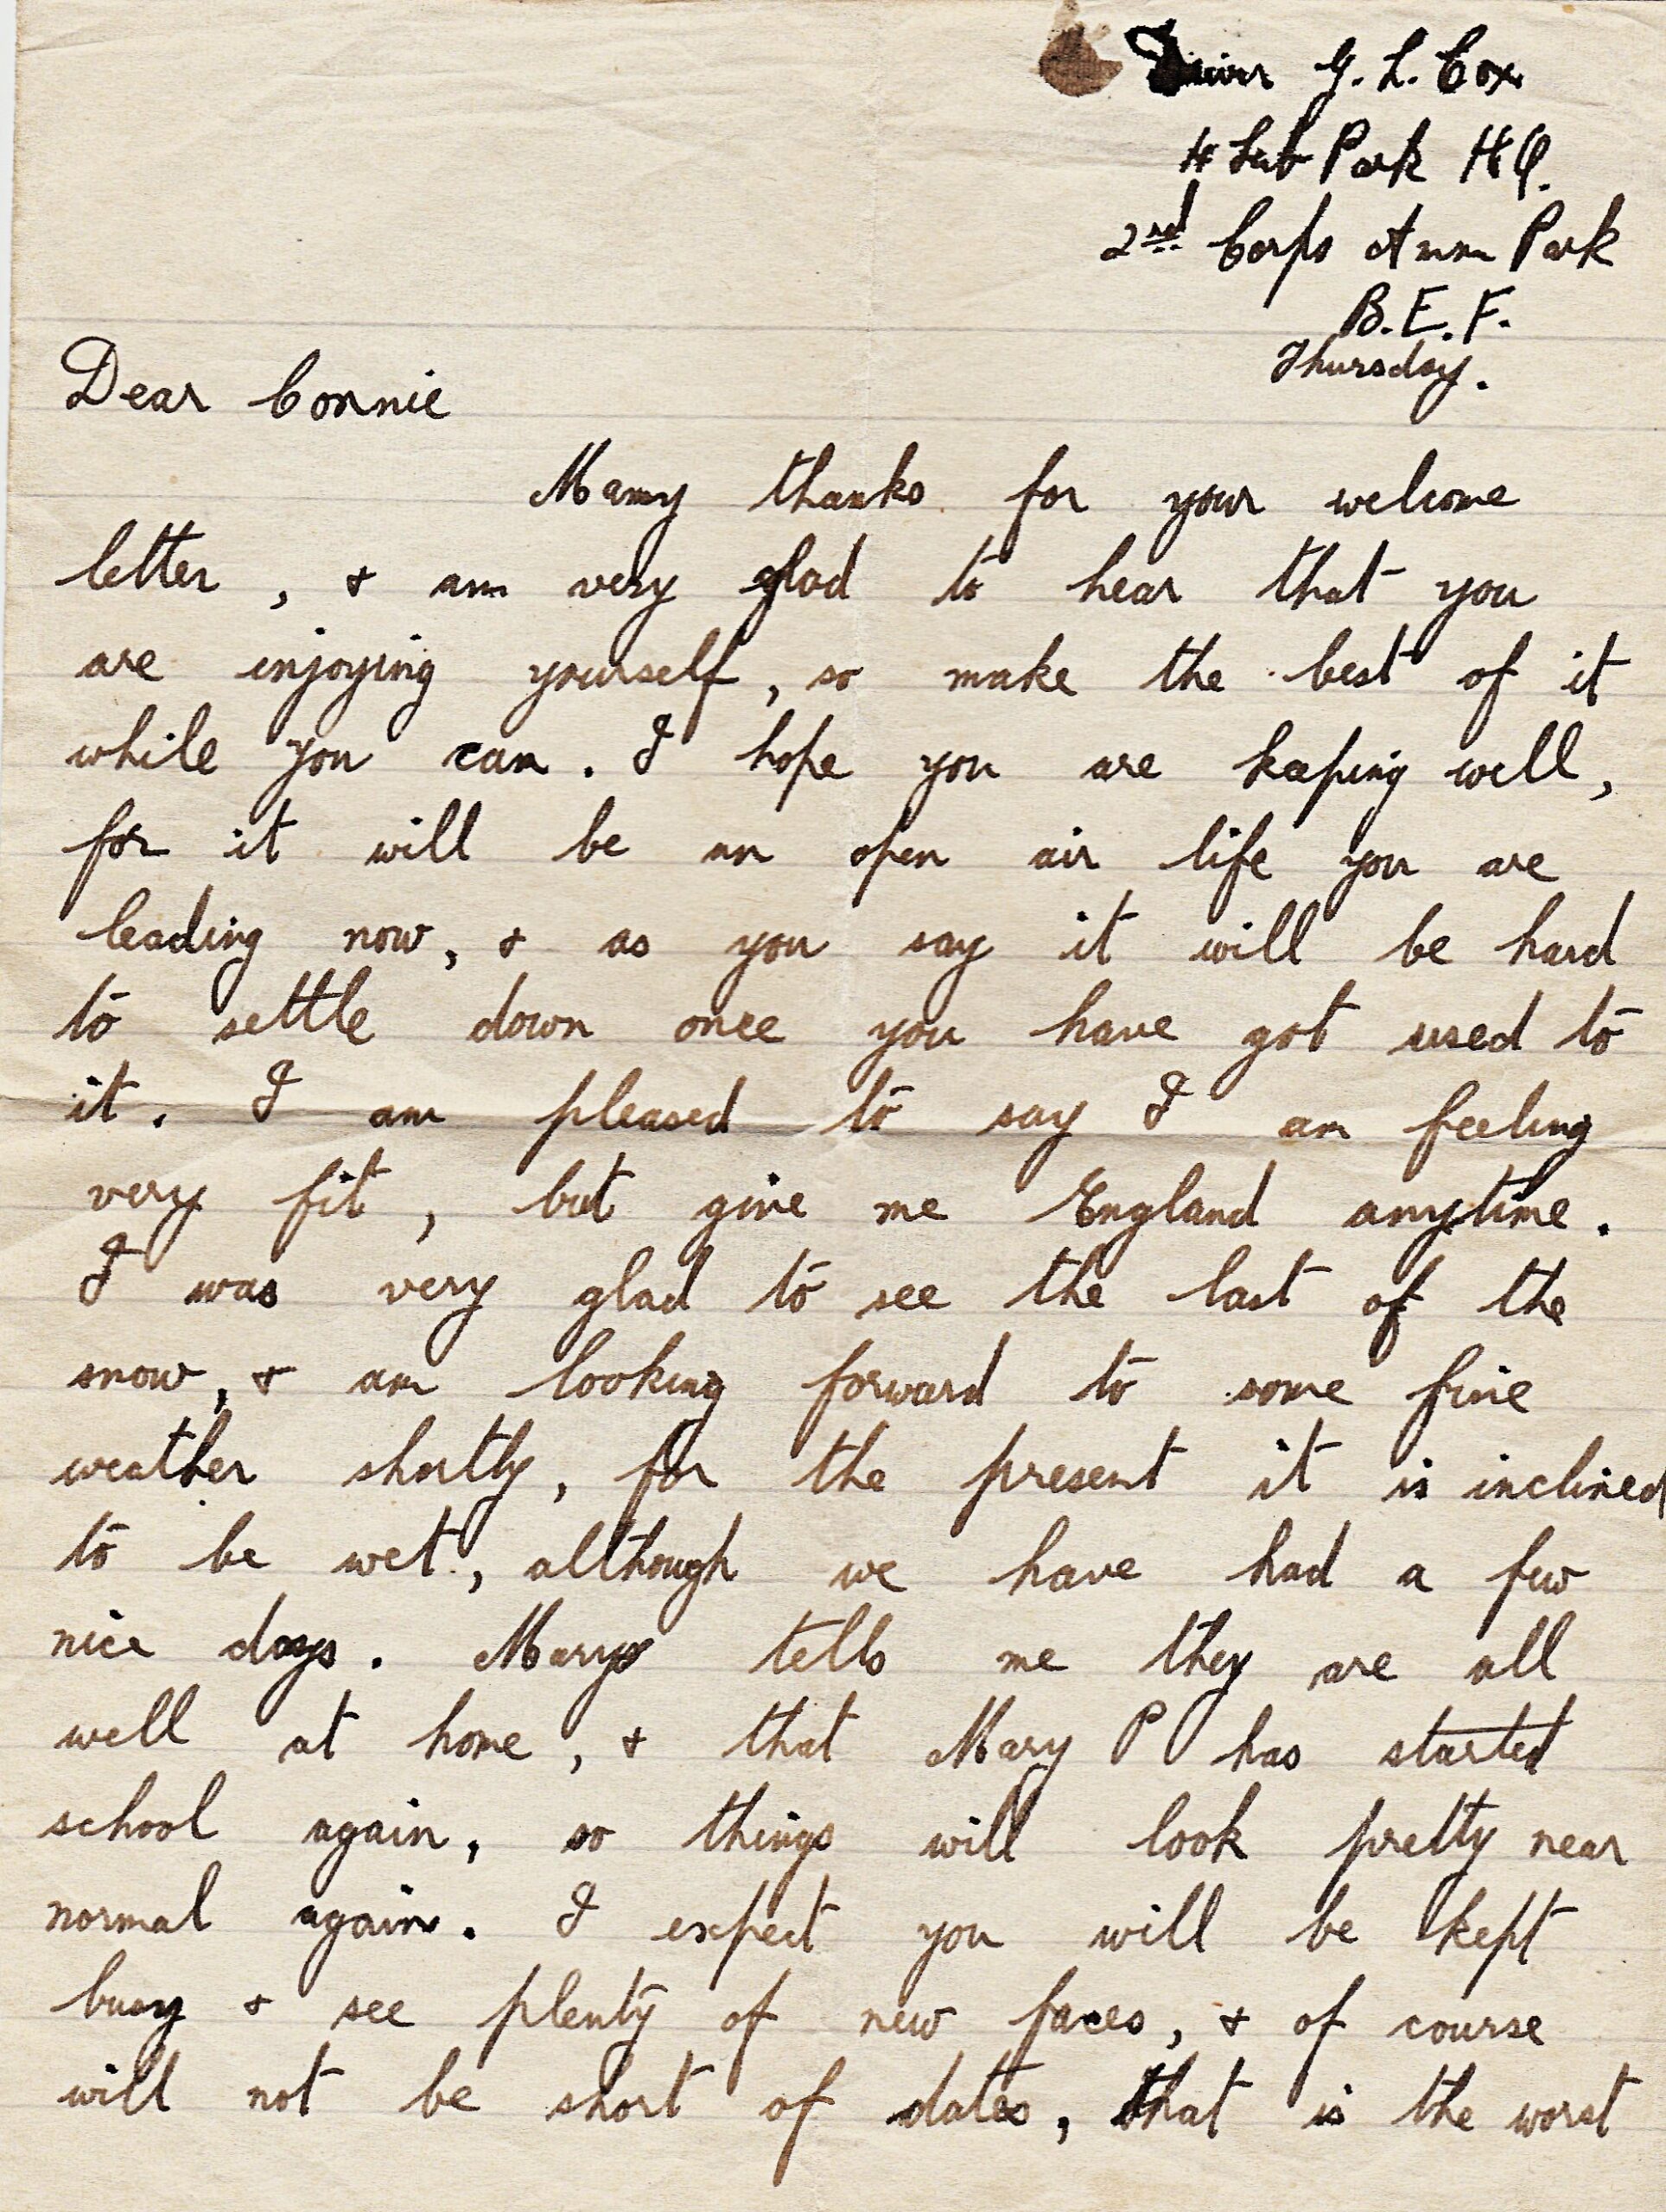 Driver G. L. Cox
H Sub Park HQ.
2nd Corps Amm Park
B. E. F.
Thursday.
Dear Connie
Many thanks for your welcome
letter, & am very glad to hear that you
are enjoying yourself, so make the best of it
while you can. I hope you are keeping well,
for it will be an open air life you are
leading now, & as you say it will be hard
to settle down once you have got used to
it. I am pleased to say I am feeling
very fit, but give me England anytime.
I was very glad to see the last of the
snow, & am looking forward to some fine
weather shortly, for the present it is inclined
to be wet, although we have had a few
nice days. Mary tells me they are all
well at home, & that Mary P has started
school again, so things will look pretty near
normal again. I expect you will be kept
busy & see plenty of new faces, & of course
will not be short of dates, that is the worst